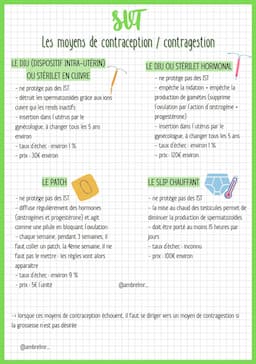 SVT
Les moyens de contraception / contragestion
LE DIU (DISPOSITIF INTRA-UTÉRIN)
OU STÉRILET EN CUIVRE
- ne protège pas des IST
- détruit les spermatozoïdes grâce aux ions
cuivre qui les rends inactifs
- insertion dans l utérus par le
gynécologue, à changer tous les 5 ans
environ
- taux d'échec : environ 1 %
- prix : 30€ environ
LE DIU OU STÉRILET HORMONAL
- ne protège pas des IST
- empêche la nidation + empêche la
production de gamètes (supprime
l'ovulation par l'action d'œstrogène +
progestérone)
- insertion dans l utérus par le
gynécologue, à changer tous les 5 ans
- taux d'échec : environ 1 %
- prix : 120€ environ
LE PATCH
- ne protège pas des IST
- diffuse régulièrement des hormones
(œstrogènes et progestérone) et agit
comme une pilule en bloquant l'ovulation
- chaque semaine, pendant 3 semaines, il
faut coller un patch, la 4ème semaine, il ne
faut pas le mettre : les règles vont alors
apparaître
- taux d'échec : environ 9 %
- prix : 5€ l'unité
LE SLIP CHAUFFANT
- ne protège pas des IST
- la mise au chaud des testicules permet de
diminuer la production de spermatozoïdes
- doit être porté au moins 15 heures par
jours
- taux d'échec : inconnu
- prix : 100€ environ
→ lorsque ces moyens de contraception échouent, il faut se diriger vers un moyen de contragestion si
la grossesse n'est pas désirée